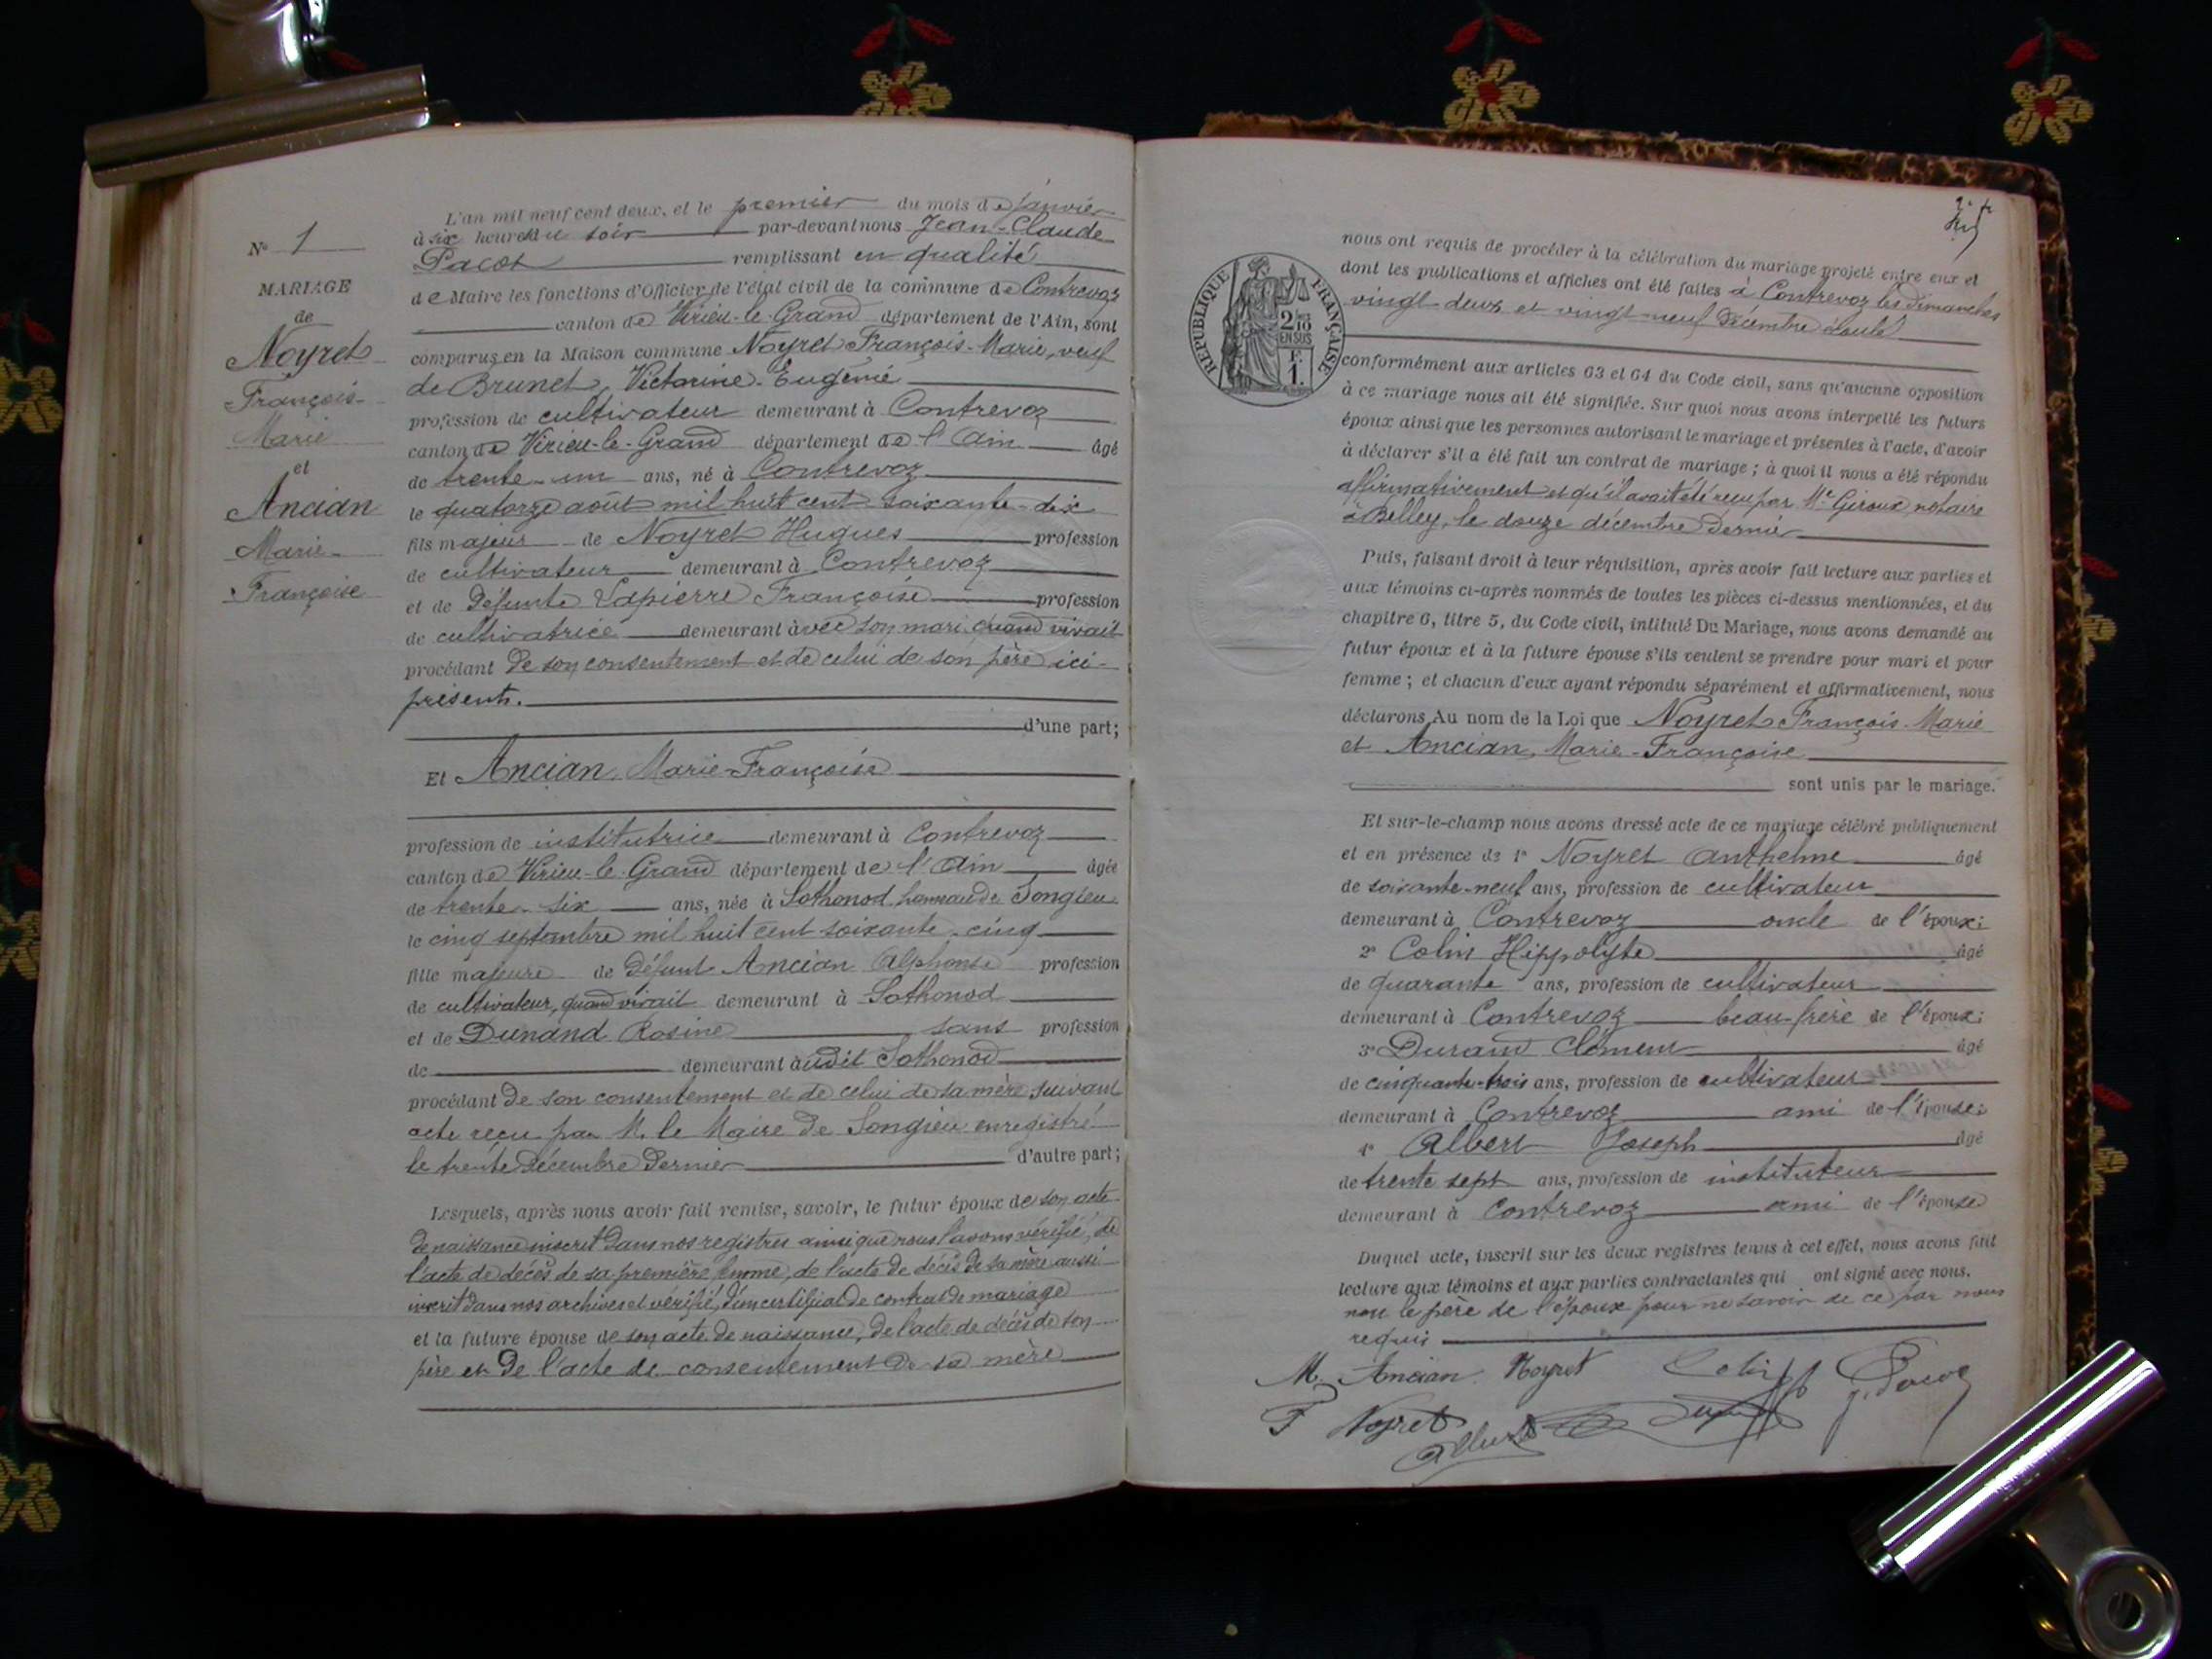 N° 1
MARIAGE
de
Noyret
François-
Marie
et
Ancian
Marie-
Françoise
L'an mil neuf cent deux, et le premier du mois de janvier
à six heures du soir par-devant nous Jean-Claude
Pacot remplissant en qualité
de Maire les fonctions d'Officier de l'état civil de la commune de Contrevoz
canton de Virieu-le-Grand département de l'Ain, sont
comparus en la Maison commune Noyret François-Marie, veuf
de Brunet, Victorine-Eugénie
profession de cultivateur demeurant à Contrevoz
canton de Virieu-le-Grand département de l'Ain âgé
de trente-un ans, né à Contrevoz
le quatorze août mil huit cent soixante-dix
fils majeur de Noyret Hugues profession
de cultivateur demeurant à Contrevoz
et de défunte Lapierre Françoise profession
de cultivatrice demeurant avec son mari quand vivait
procédant de son consentement et de celui de son père ici-
présent.
d'une part;
Et Ancian, Marie-Françoise
profession de institutrice demeurant à Contrevoz
canton de Virieu-le-Grand département de l'Ain âgée
de trente-six ans, née à Sothonod hameau de Songieu
le cinq septembre mil huit cent soixante-cinq
fille majeure de défunt Ancian Alphonse profession
de cultivateur, quand vivait demeurant à Sothonod
et de Dunand Rosine sans profession
de demeurant audit Sothonod
procédant de son consentement et de celui de sa mère suivant
acte reçu par M. le Maire de Songieu enregistré
le trente décembre dernier d'autre part;
Lesquels, après nous avoir fait remise, savoir, le futur époux de son acte
de naissance inscrit dans nos registres ainsi que nous l'avons vérifié, de
l'acte de décès de sa première femme, de l'acte de décès de sa mère aussi
inscrit dans nos archives et vérifié, d'un certificat de contrat de mariage
et la future épouse de son acte de naissance, de l'acte de décès de son
père et de l'acte de consentement de sa mère
RÉPUBLIQUE FRANÇAISE
2/10 EN SUS
F. 1.
nous ont requis de procéder à la célébration du mariage projeté entre eux et
dont les publications et affiches ont été faites à Contrevoz les dimanches
vingt-deux et vingt-neuf décembre écoulé
conformément aux articles 63 et 64 du Code civil, sans qu'aucune opposition
à ce mariage nous ait été signifiée. Sur quoi nous avons interpellé les futurs
époux ainsi que les personnes autorisant le mariage et présentes à l'acte, d'avoir
à déclarer s'il a été fait un contrat de mariage ; à quoi il nous a été répondu
affirmativement et qu'il avait été reçu par Me Giroux notaire
à Belley, le douze décembre dernier
Puis, faisant droit à leur réquisition, après avoir fait lecture aux parties et
aux témoins ci-après nommés de toutes les pièces ci-dessus mentionnées, et du
chapitre 6, titre 5, du Code civil, intitulé Du Mariage, nous avons demandé au
futur époux et à la future épouse s'ils veulent se prendre pour mari et pour
femme ; et chacun d'eux ayant répondu séparément et affirmativement, nous
déclarons Au nom de la Loi que Noyret François-Marie
et Ancian, Marie-Françoise
sont unis par le mariage.
Et sur-le-champ nous avons dressé acte de ce mariage célébré publiquement
et en présence de 1° Noyret Anthelme âgé
de soixante-neuf ans, profession de cultivateur
demeurant à Contrevoz oncle de l'époux;
2° Colin Hippolyte âgé
de quarante ans, profession de cultivateur
demeurant à Contrevoz beau-frère de l'époux;
3° Durand Clément âgé
de cinquante-trois ans, profession de cultivateur
demeurant à Contrevoz ami de l'épouse;
4° Albert Joseph âgé
de trente sept ans, profession de instituteur
demeurant à Contrevoz ami de l'épouse
Duquel acte, inscrit sur les deux registres tenus à cet effet, nous avons fait
lecture aux témoins et aux parties contractantes qui ont signé avec nous.
non le père de l'époux pour ne savoir de ce par nous
requis
M. Ancian Noyret Colin J. Pacot
F Noyret Albert